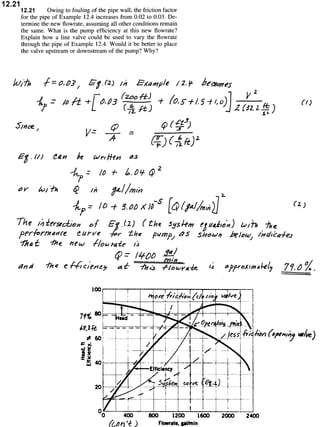 12.21
12.21 Owing to fouling of the pipe wall, the friction factor
for the pipe of Example 12.4 increases from 0.02 to 0.03. De-
termine the new flowrate, assuming all other conditions remain
the same. What is the pump efficiency at this new flowrate?
Explain how a line valve could be used to vary the flowrate
through the pipe of Example 12.4. Would it be better to place
the valve upstream or downstream of the pump? Why?
With f = 0.03, Eq.(2) in Example 12.4 becomes
hp = 10 ft + [0.03 (200 ft)/(6/12 ft) + (0.5+1.5+1.0)] V²/2(32.2 ft/s²) (1)
Since,
V = Q/A = Q(ft³/s)/(π/4)(6/12 ft)²
Eq.(1) can be written as
hp = 10 + 6.04 Q²
or with Q in gal/min
hp = 10 + 3.00 × 10⁻⁵ [Q(gal/min)]² (2)
The intersection of Eq.(2) (the system equation) with the
performance curve for the pump, as shown below, indicates
that the new flowrate is
Q = 1400 gal/min
and the efficiency at this flowrate is approximately 79.0%.
more friction (closing valve)
100
79% 80
Head
Operating point
68.8ft
less friction (opening valve)
60
40
Efficiency
20
System curve (Eq.2)
0
Head, ft
Efficiency, %
0 400 800 1200 1600 2000 2400
(con't) Flowrate, gal/min